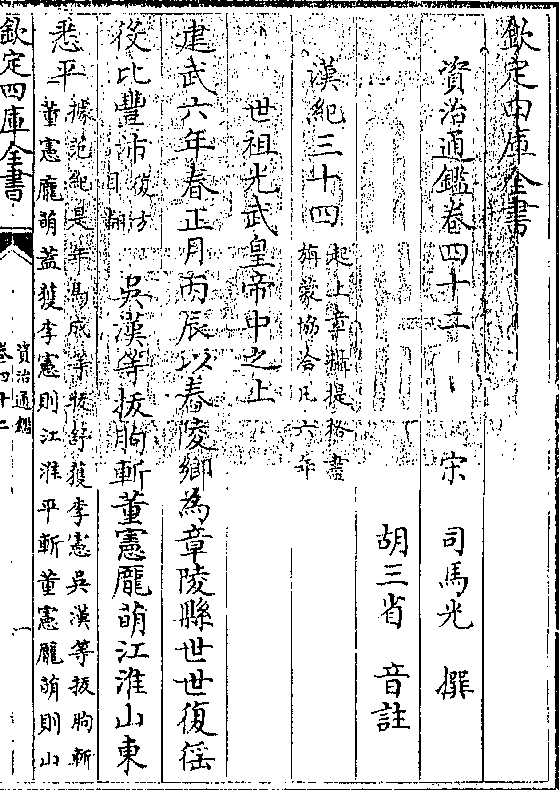 欽定四庫全書
資治通鑑卷四十二
宋 司馬光 撰
胡三省 音註
漢紀三十四
起上章攝提格盡
旃蒙協洽凡六年
世祖光武皇帝中之上
建武六年春正月丙辰以舂陵鄉為章陵縣世世復徭
役比豐沛
復方
目翻
吳漢等拔朐斬董憲龐萌江淮山東
悉平
據范紀是年馬成等拔舒獲李憲吳漢等拔朐斬
董憲龐萌蓋獲李憲則江淮平斬董憲龐萌則山
欽定四庫全書
資治通鑑
卷四十二
一